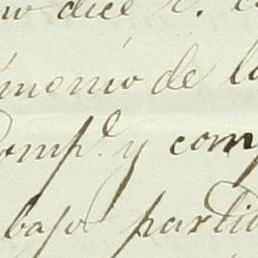 no dice
imonio de l
omp.ª y com
bajo partid